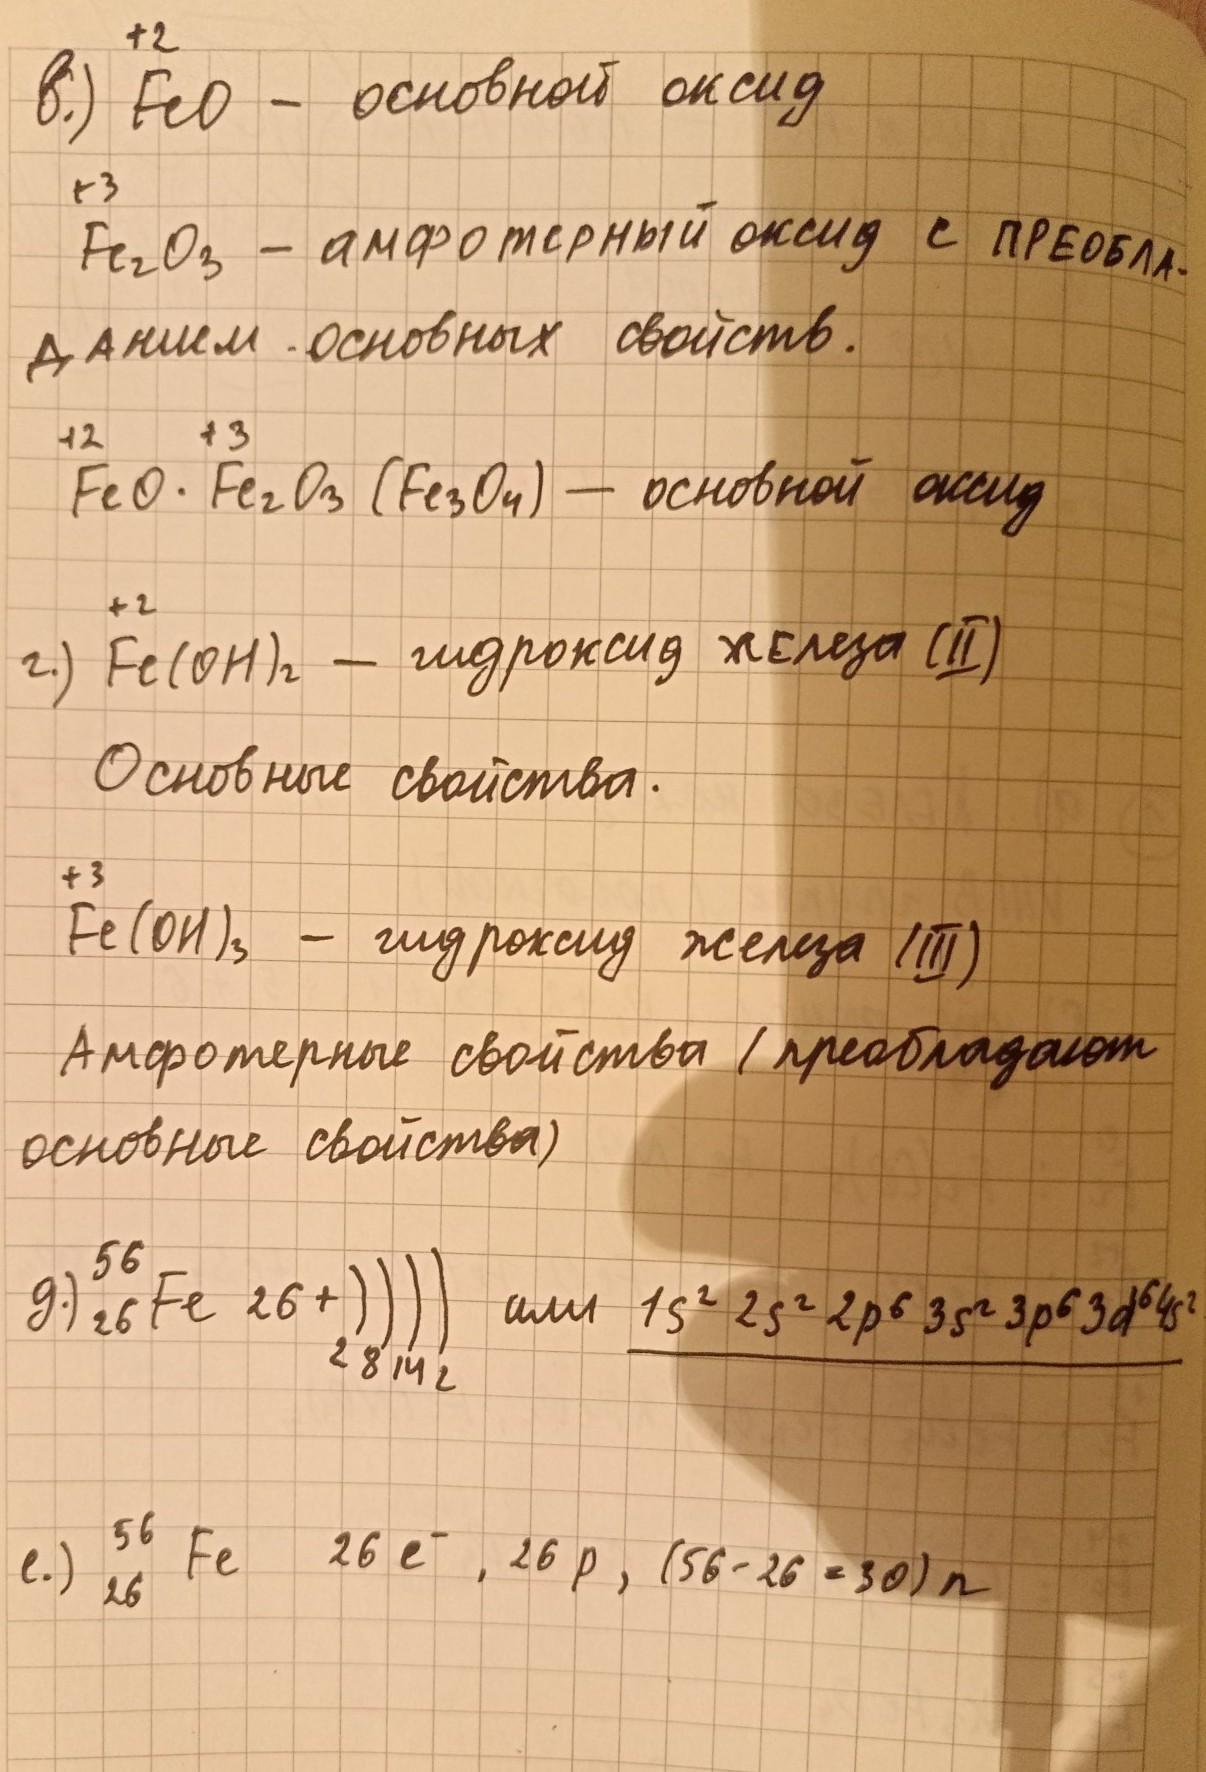 +2
в.) FeO – основной оксид
+3
Fe₂O₃ – амфотерный оксид с ПРЕОБЛА-
ДАНИЕМ основных свойств.
+2 +3
FeO · Fe₂O₃ (Fe₃O₄) – основной оксид
+2
г.) Fe(OH)₂ – гидроксид железа (II)
Основные свойства.
+3
Fe(OH)₃ – гидроксид железа (III)
Амфотерные свойства (преобладают
основные свойства)
д.) ⁵⁶₂₆Fe 26+)))) или 1s² 2s² 2p⁶ 3s² 3p⁶ 3d⁶ 4s²
2 8 14 2
е.) ⁵⁶₂₆Fe 26 e⁻, 26 p, (56-26=30) n